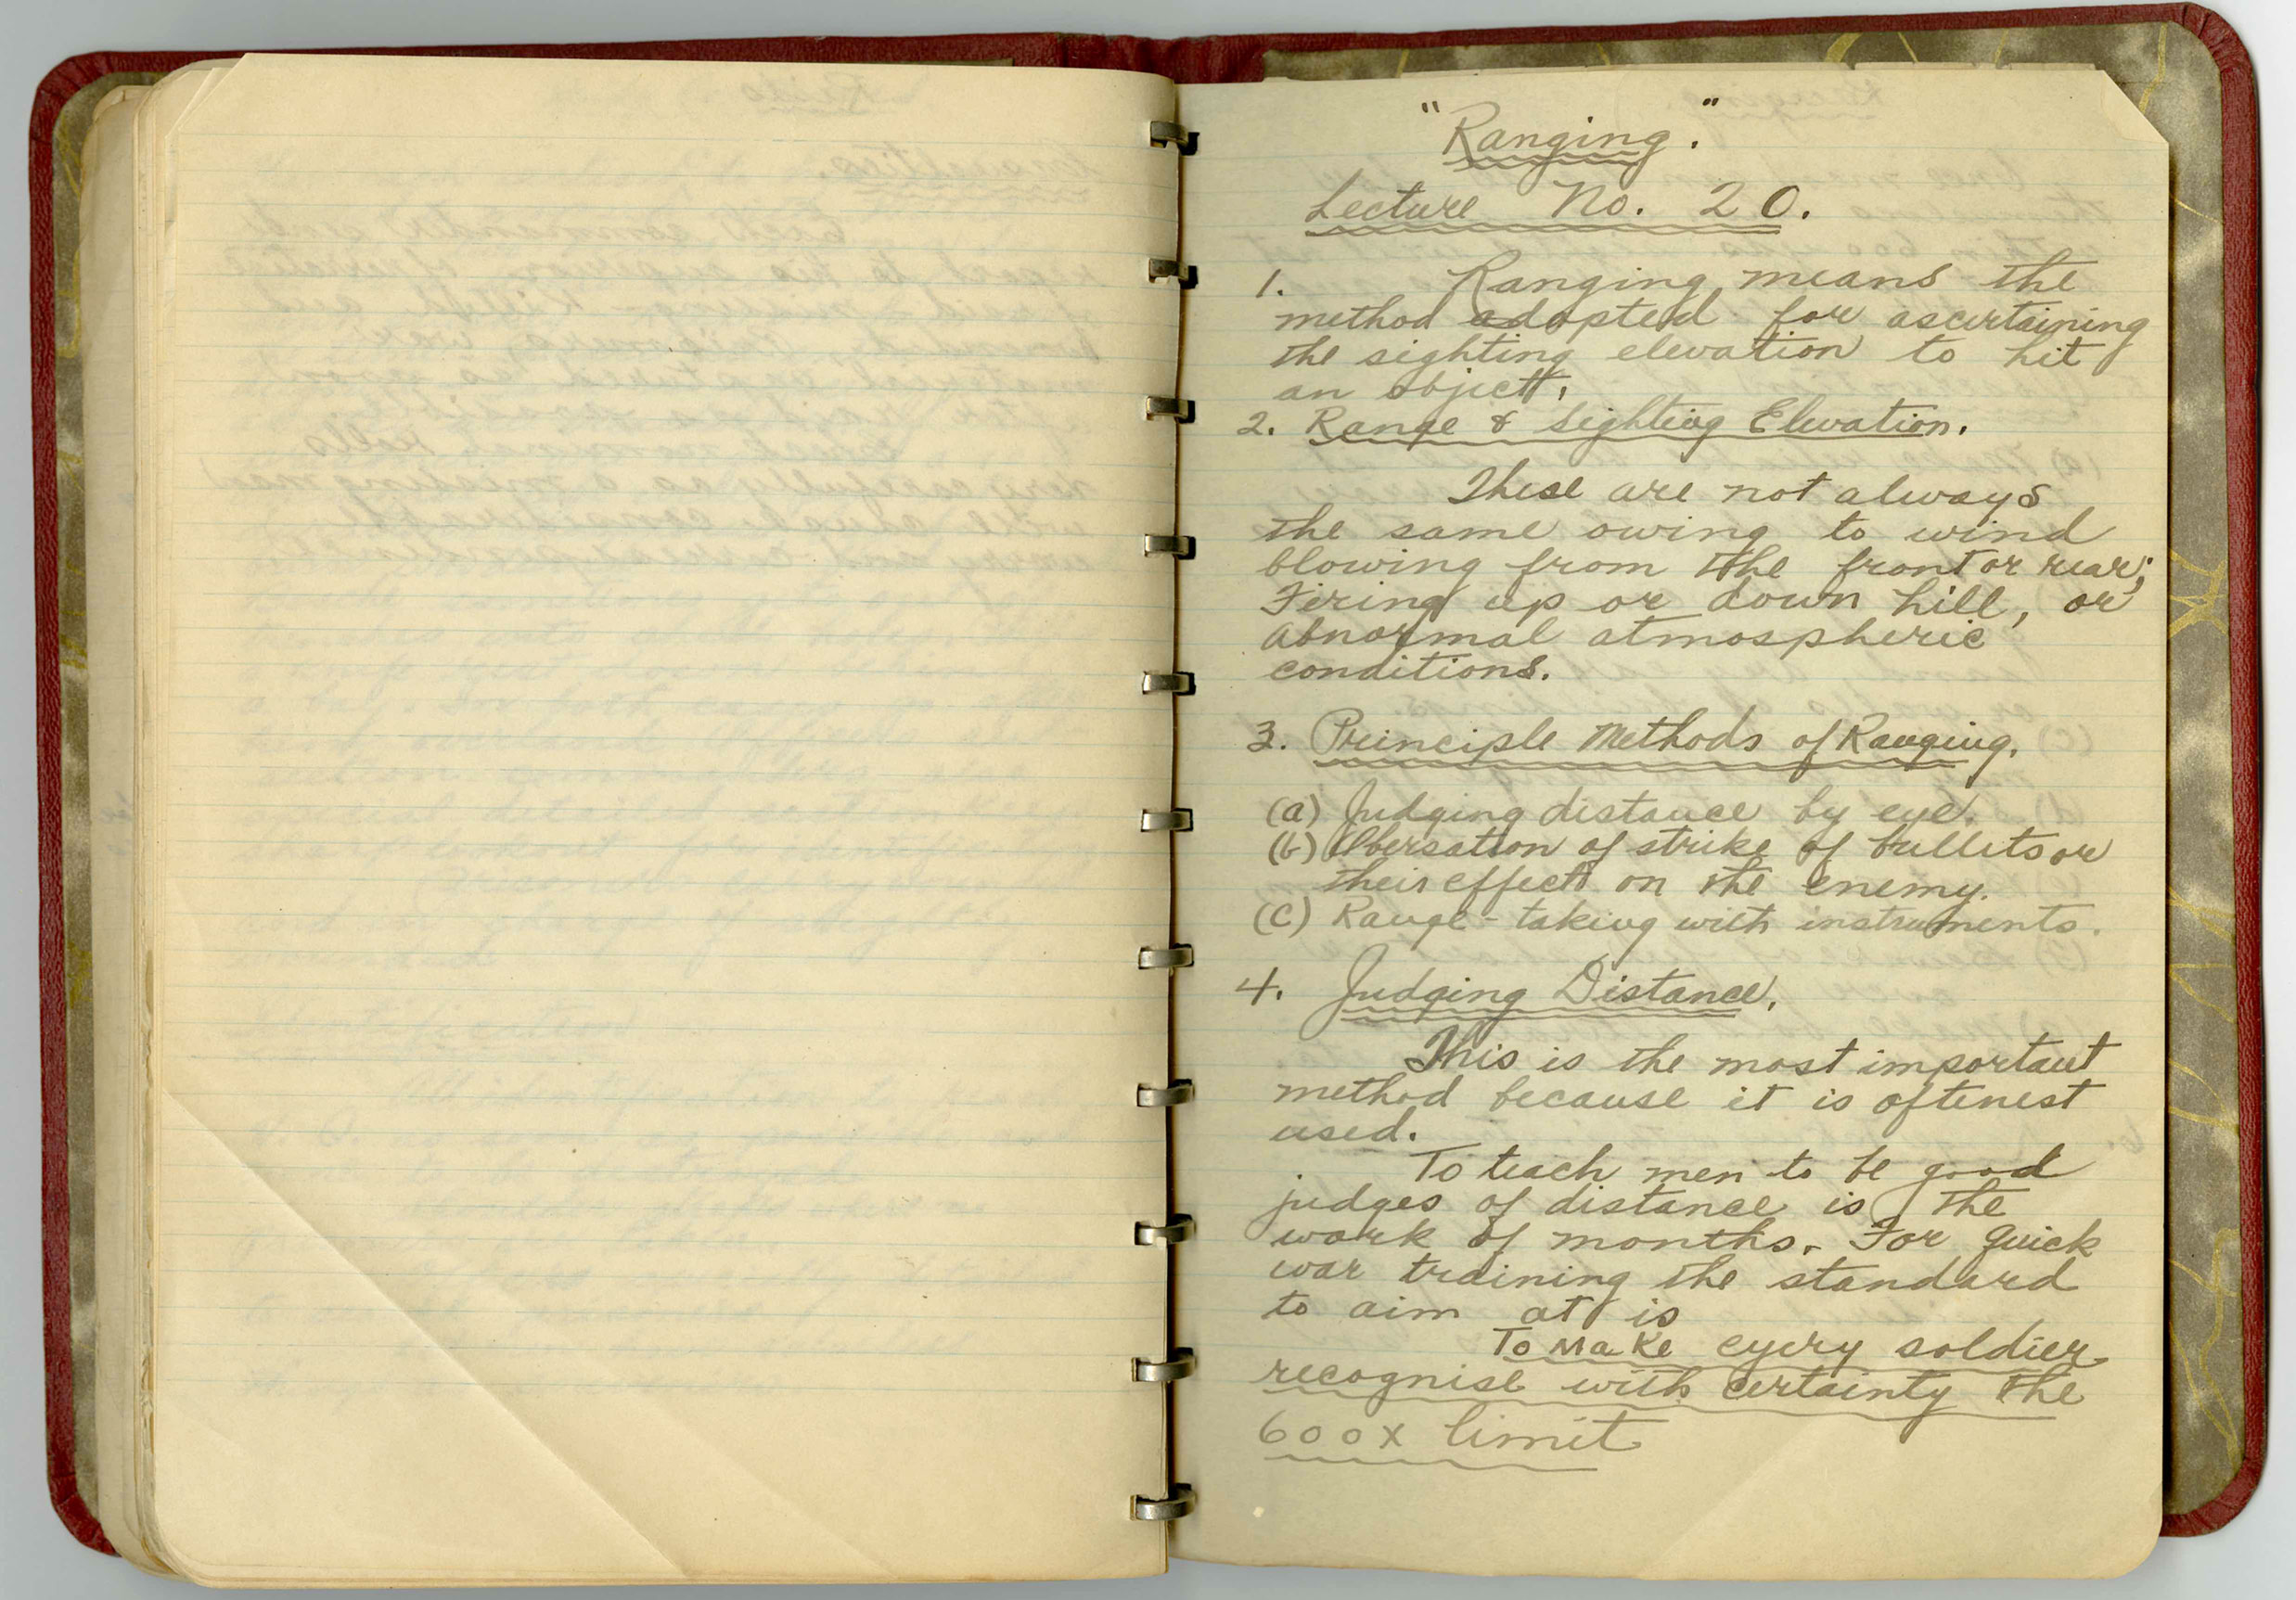 "Ranging."
Lecture No. 20.
1. Ranging means the
method adopted for ascertaining
the sighting elevation to hit
an object.
2. Range & Sighting Elevation.
These are not always
the same owing to wind
blowing from the front or rear;
Firing up or down hill, or
abnormal atmospheric
conditions.
3. Principle Methods of Ranging.
(a) Judging distance by eye.
(b) Obersation of strike of bullets or
their effect on the enemy.
(c) Range-taking with instruments.
4. Judging Distance.
This is the most important
method because it is oftenest
used.
To teach men to be good
judges of distance is the
work of months. For quick
war training the standard
to aim at is
To make every soldier
recognise with certainty the
600x limit